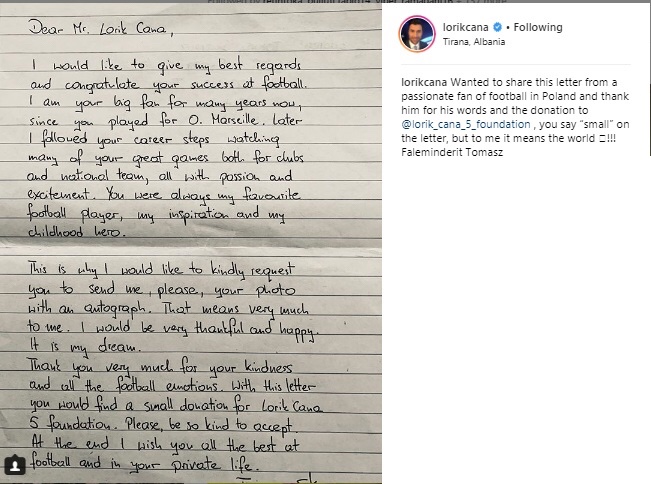 Dear Mr. Lorik Cana,
I would like to give my best regards
and congratulate your success at football.
I am your big fan for many years now,
since you played for O. Marseille. Later
I followed your career steps watching
many of your great games both for clubs
and national team, all with passion and
excitement. You were always my favourite
football player, my inspiration and my
childhood hero.
This is why I would like to kindly request
you to send me, please, your photo
with an autograph. That means very much
to me. I would be very thankful and happy.
It is my dream.
Thank you very much for your kindness
and all the football emotions. With this letter
you would find a small donation for Lorik Cana
5 foundation. Please, be so kind to accept.
At the end I wish you all the best at
football and in your private life.
lorikcana • Following
Tirana, Albania
lorikcana Wanted to share this letter from a
passionate fan of football in Poland and thank
him for his words and the donation to
@lorik_cana_5_foundation , you say “small” on
the letter, but to me it means the world !!!
Faleminderit Tomasz